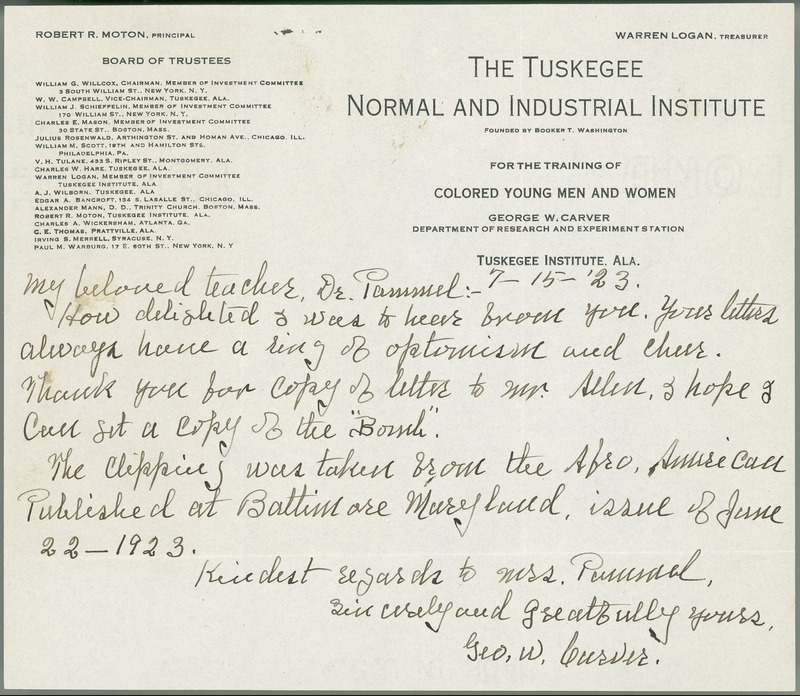 ROBERT R. MOTON, PRINCIPAL
WARREN LOGAN, TREASURER
BOARD OF TRUSTEES
WILLIAM G. WILLCOX, CHAIRMAN, MEMBER OF INVESTMENT COMMITTEE
3 SOUTH WILLIAM ST., NEW YORK, N. Y.
W. W. CAMPBELL, VICE-CHAIRMAN, TUSKEGEE, ALA.
WILLIAM J. SCHIEFFELIN, MEMBER OF INVESTMENT COMMITTEE
170 WILLIAM ST., NEW YORK, N. Y.
CHARLES E. MASON, MEMBER OF INVESTMENT COMMITTEE
30 STATE ST., BOSTON, MASS.
JULIUS ROSENWALD, ARTHINGTON ST. AND HOMAN AVE., CHICAGO, ILL.
WILLIAM M. SCOTT, 19TH AND HAMILTON STS.
PHILADELPHIA, PA.
V. H. TULANE, 453 S. RIPLEY ST., MONTGOMERY, ALA.
CHARLES W. HARE, TUSKEGEE, ALA.
WARREN LOGAN, MEMBER OF INVESTMENT COMMITTEE
TUSKEGEE INSTITUTE, ALA
A. J. WILBORN, TUSKEGEE, ALA
EDGAR A. BANCROFT, 134 S. LASALLE ST., CHICAGO, ILL.
ALEXANDER MANN, D. D., TRINITY CHURCH, BOSTON, MASS.
ROBERT R. MOTON, TUSKEGEE INSTITUTE, ALA.
CHARLES A. WICKERSHAM, ATLANTA, GA.
C. E. THOMAS, PRATTVILLE, ALA.
IRVING S. MERRELL, SYRACUSE, N. Y.
PAUL M. WARBURG, 17 E. 80TH ST., NEW YORK, N. Y
THE TUSKEGEE
NORMAL AND INDUSTRIAL INSTITUTE
FOUNDED BY BOOKER T. WASHINGTON
FOR THE TRAINING OF
COLORED YOUNG MEN AND WOMEN
GEORGE W. CARVER
DEPARTMENT OF RESEARCH AND EXPERIMENT STATION
TUSKEGEE INSTITUTE, ALA.
7-15-'23.
My beloved teacher, Dr. Pammel:-
How delighted I was to hear from you. Your letters
always have a ring of optomism and cheer.
Thank you for copy of letter to mr. Allen, I hope I
Can get a copy of the "Bomb".
The Clipping was taken from the Afro, American
Published at Baltimore Maryland, issue of June
22-1923.
Kindest regards to mrs. Pammel,
Sincerely and greatfully yours,
Geo. W. Carver.